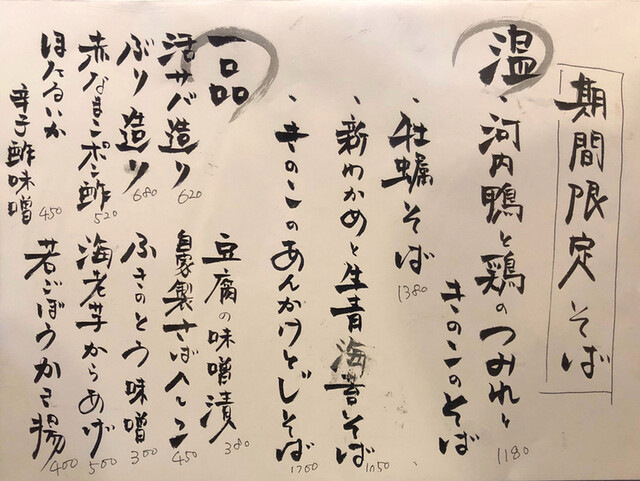 期間限定そば
温
・河内鴨と鶏のつみれと
きのこのそば
1180
・牡蠣そば
1380
・新わかめと生青海苔そば
1050
・きのこのあんかけとじそば
1200
一品
活サバ造り
620
ぶり造り
680
赤なまこポン酢
520
ほたるいか
辛子酢味噌
450
豆腐の味噌漬
380
自家製さばへしこ
450
ふきのとう味噌
300
海老芋からあげ
500
若ごぼうかき揚
400